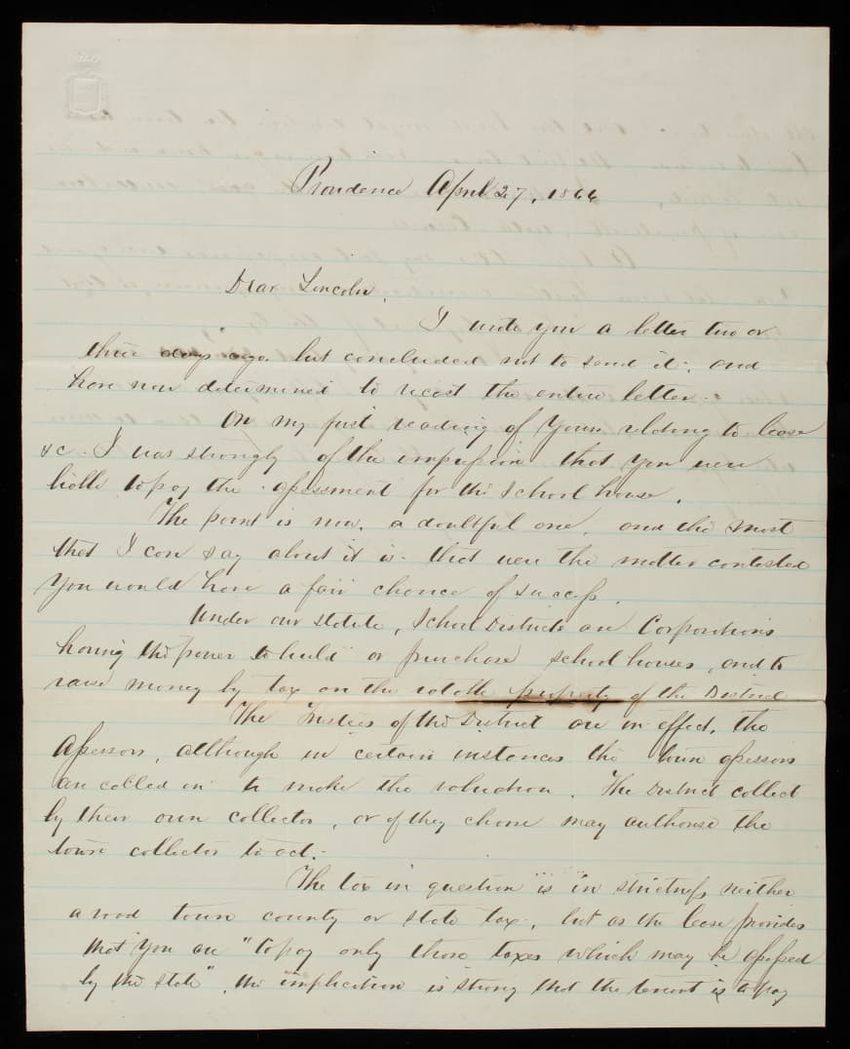 Providence April 27, 1866
Dear Lincoln,
I wrote you a letter two or
three days ago. but concluded not to send it; and
have now determined to recast the entire letter.
On my first reading of Yours relating to lease
&c. I was strongly of the impression that you were
liable to pay the assessment for the School house.
The point is now, a doubtful one, and the most
that I can say about it is. that were the matter contested
You would have a fair chance of success.
Under our statute, School Districts are Corporations
having the power to build or purchase school houses, and to
raise money by tax on the ratable property of the District
The Trustees of the District are in effect, the
assessors, although in certain instances the town assessors
are called in to make the valuation. The District collect
by their own collector, or if they choose may authorise the
town collector to act.
The tax in question is in strictness neither
a road town county or state tax, but as the lease provides
that You are "to pay only those taxes which may be assessed
by the state", the implication is strong that the tenant is to pay